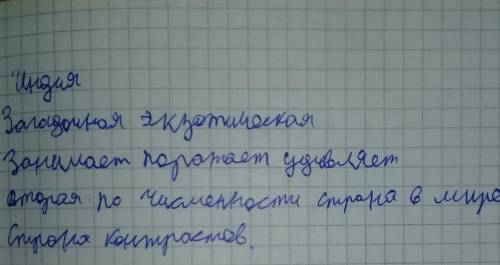 Индия
Загадочная экзотическая
Занимает поражает удивляет
вторая по численности страна в мире
Страна контрастов.